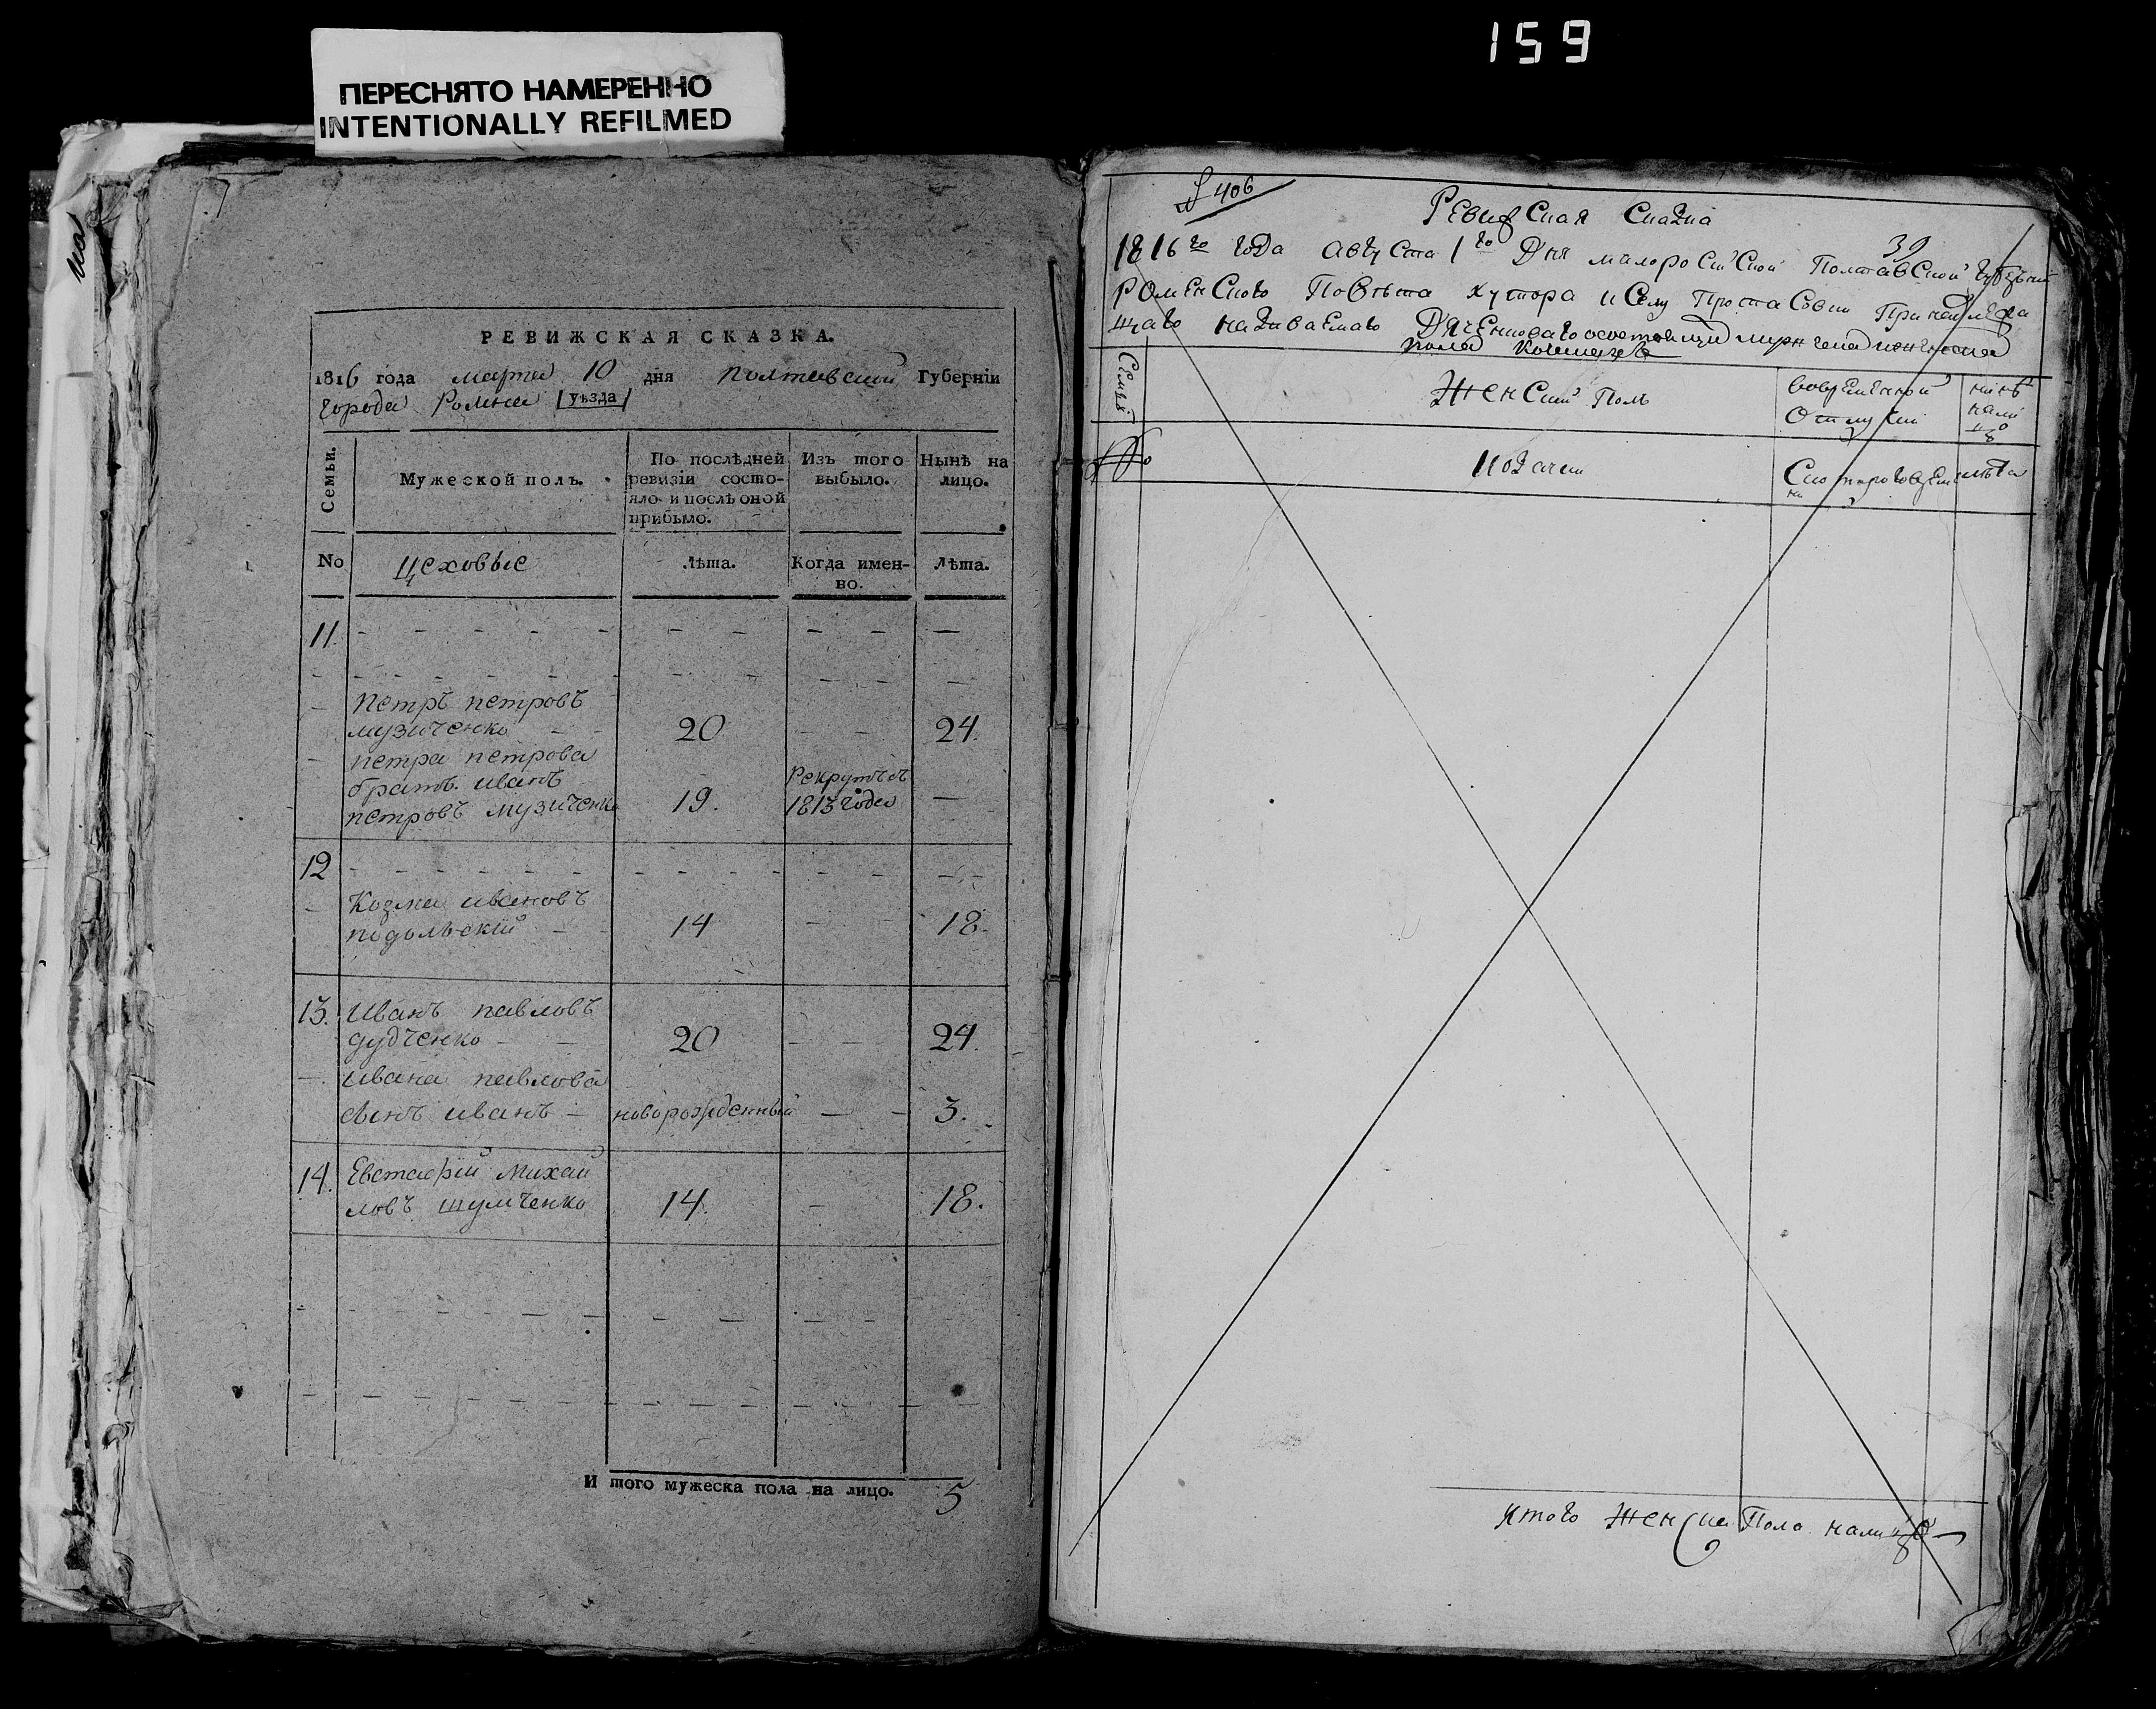 159
ПЕРЕСНЯТО НАМЕРЕННО
INTENTIONALLY REFILMED
РЕВИЖСКАЯ СКАЗКА.
1816 года марта 10 дня полтавской Губернїи
города Ромна уѣзда
Семьи.
Мужеской полъ.
По послѣдней ревизїи состо-
яло и послѣ оной
прибыло.
Изъ того
выбыло.
Нынѣ на
лицо.
No
цеховые
Лѣта.
Когда имен-
но.
Лѣта.
11.
Петръ петровъ
музиченко 20 24
петра петрова
братъ иванъ
петровъ музиченко 19. Рекрутъ въ
1813 года
12
Козма ивановъ
подольскїй 14 18.
13. Иванъ павловъ
дудченко 20 24.
ивана павлова
сынъ иванъ новорожденный 3.
14. Евстафїй Михай
ловъ шумченко 14. 18.
И того мужеска пола на лицо. 5
406
Ревижская Сказка
39
1816го года августа 1го Дня малоросійской Полтавской
Роменского Повѣта хутора
щаго називаемаго
Семьи
Женский Полъ
во временной
отлучки
нинѣ
на ли
цо
No
козачки
лѣта
итого женска Пола налицо